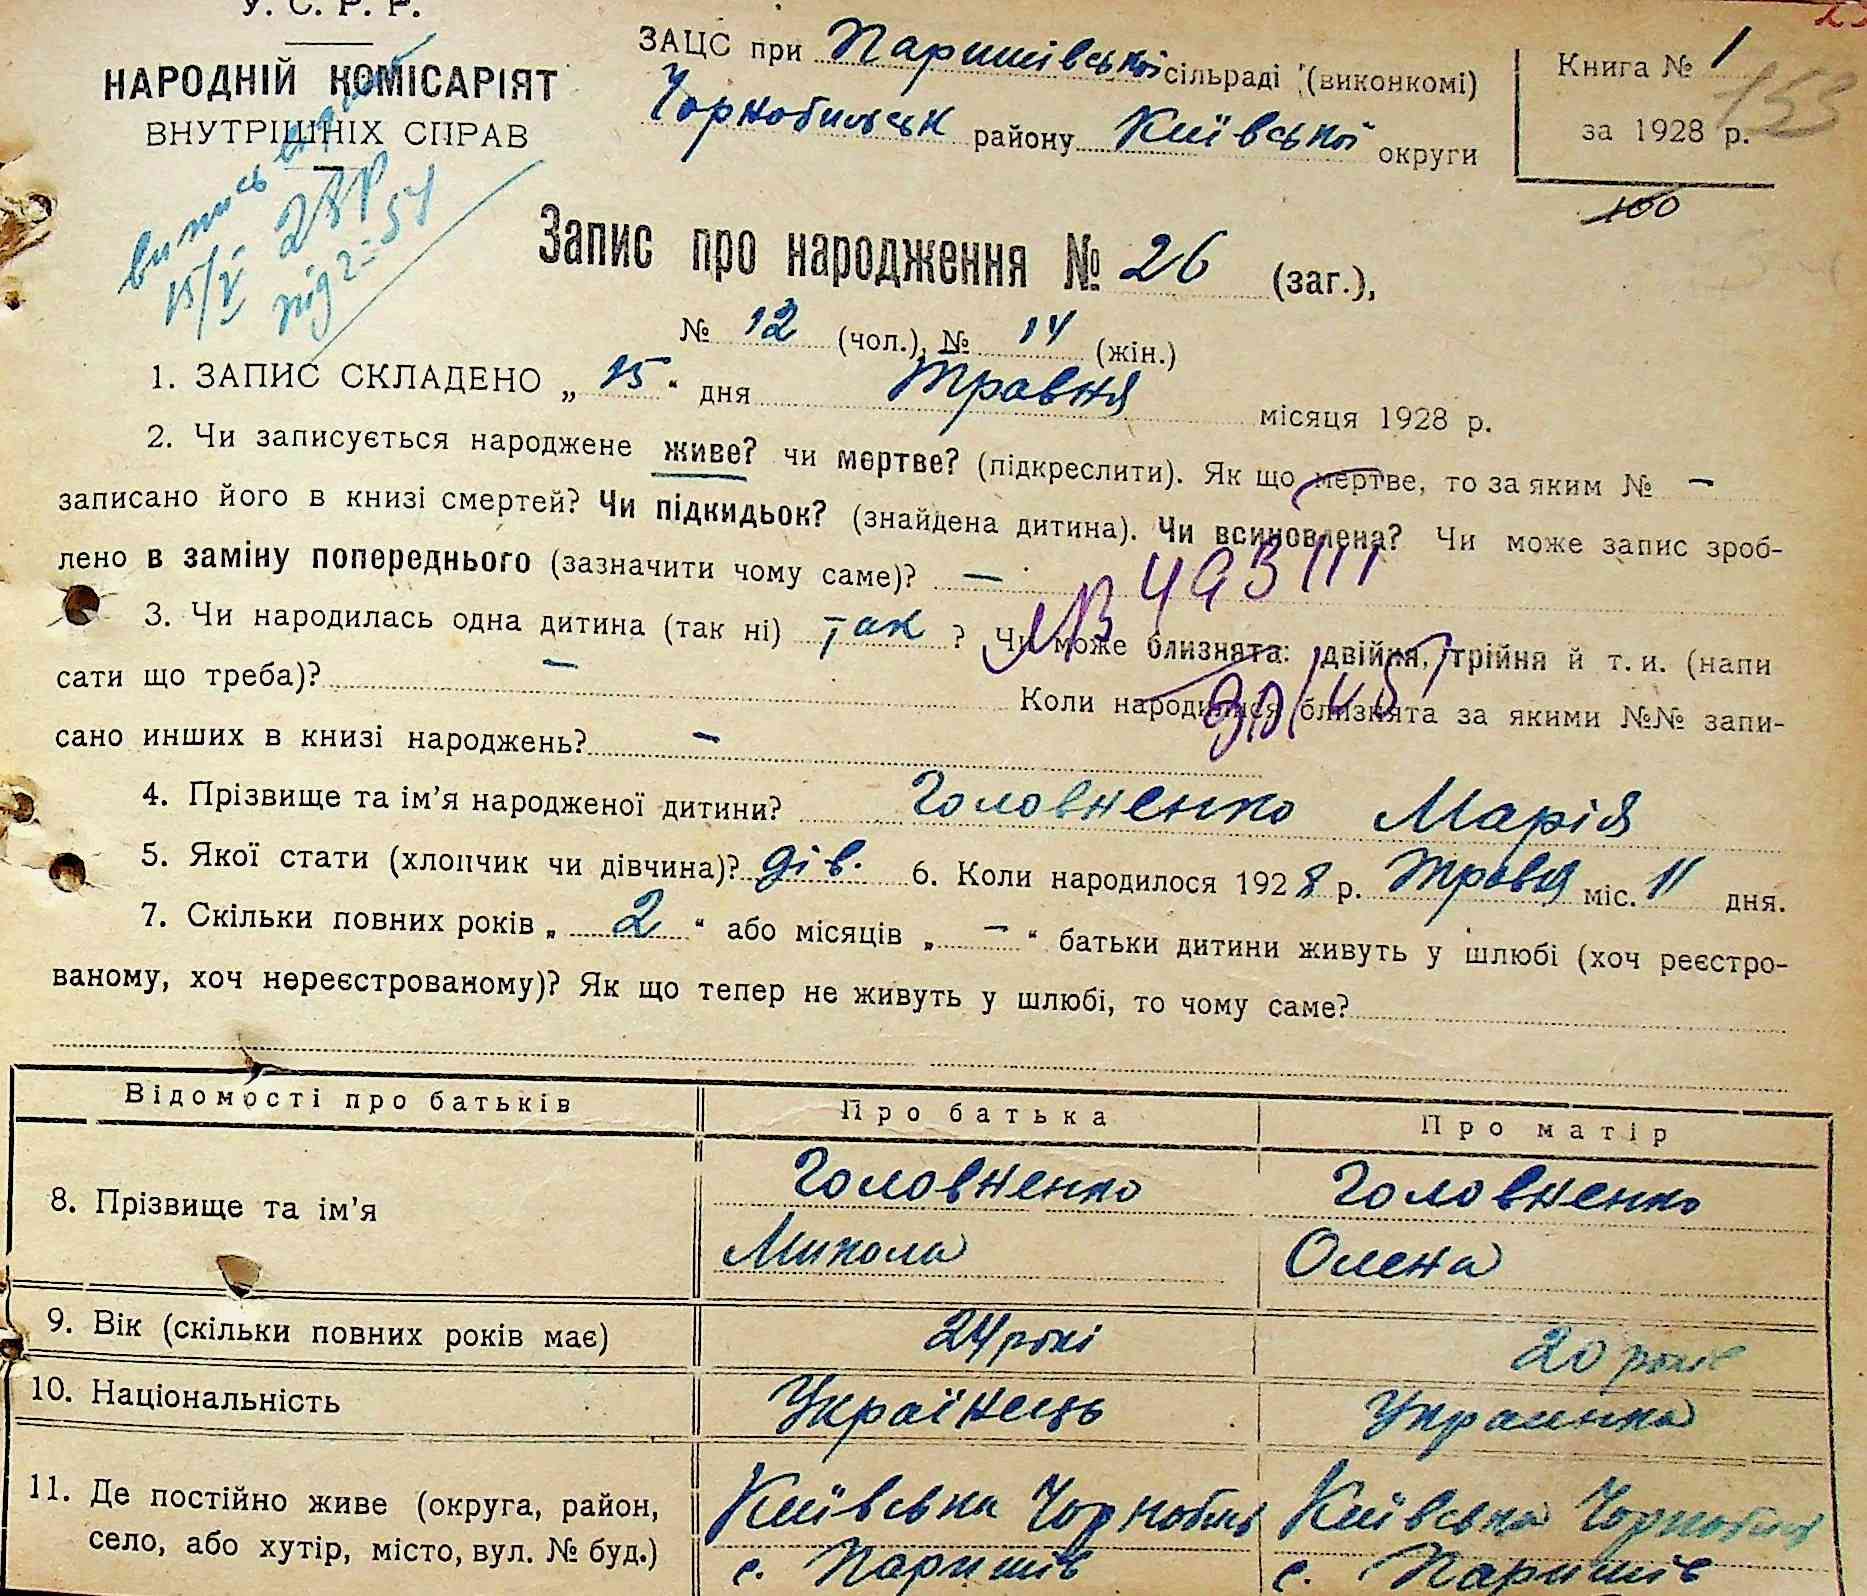 У. С. Р. Р.
НАРОДНІЙ КОМІСАРІЯТ
ВНУТРІШНІХ СПРАВ
випись
15/V 28р
під 2= 54
ЗАЦС при Паришівській сільраді (виконкомі)
Чорнобильськ району Київської округи
Книга № 1
за 1928 р.
153
100
Запис про народження № 26 (заг.),
№ 12 (чол.), № 14 (жін.)
1. ЗАПИС СКЛАДЕНО „ 15 “ дня Травня місяця 1928 р.
2. Чи записується народжене живе? чи мертве? (підкреслити). Як що мертве, то за яким № —
записано його в книзі смертей? Чи підкидьок? (знайдена дитина). Чи всиновлена? Чи може запис зроб-
лено в заміну попереднього (зазначити чому саме)? —
493111
3. Чи народилась одна дитина (так ні) так ? Чи може близнята: двійня, трійня й т. и. (напи
сати що треба)? — Коли народилися близнята за якими №№ запи-
сано инших в книзі народжень? —
4. Прізвище та ім’я народженої дитини? Головненко Марія
5. Якої стати (хлопчик чи дівчина)? дів. 6. Коли народилося 1928 р. Травня міс. 11 дня.
7. Скільки повних років „ 2 “ або місяців „ — “ батьки дитини живуть у шлюбі (хоч реєстро-
ваному, хоч нереєстрованому)? Як що тепер не живуть у шлюбі, то чому саме?
Відомості про батьків Про батька Про матір
8. Прізвище та ім’я Головненко Микола Головненко Олена
9. Вік (скільки повних років має) 24 рокі 20 років
10. Національність Українець Украинка
11. Де постійно живе (округа, район, Київська Чорнобиль Київська Чорнобиль
село, або хутір, місто, вул. № буд.) с. Паришів с. Паришів